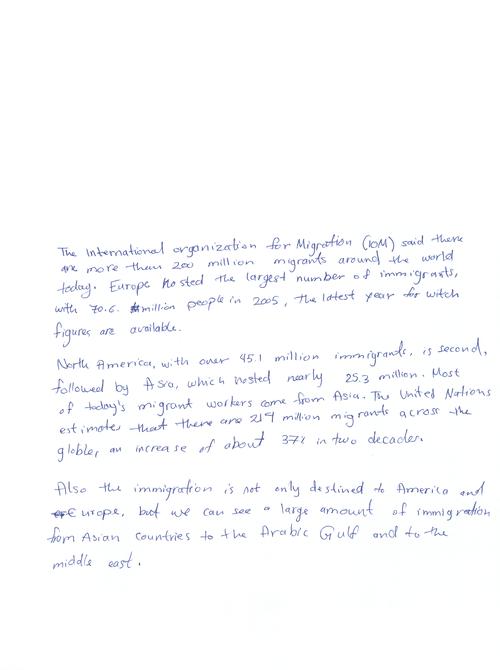 The International organization for Migration (IOM) said there
are more than 200 million migrants around the world
today. Europe hosted the largest number of immigrants,
with 70.6. million people in 2005, the latest year for witch
figures are available.
North America, with over 45.1 million immigrands, is second,
followed by Asia, which hosted nearly 25.3 million. Most
of today's migrant workers come from Asia. The United Nations
estimates that there are 214 million migrants across the
globle, an increase of about 37% in two decades.
Also the immigration is not only destined to America and
Europe, but we can see a large amount of immigration
from Asian countries to the Arabic Gulf and to the
middle east.